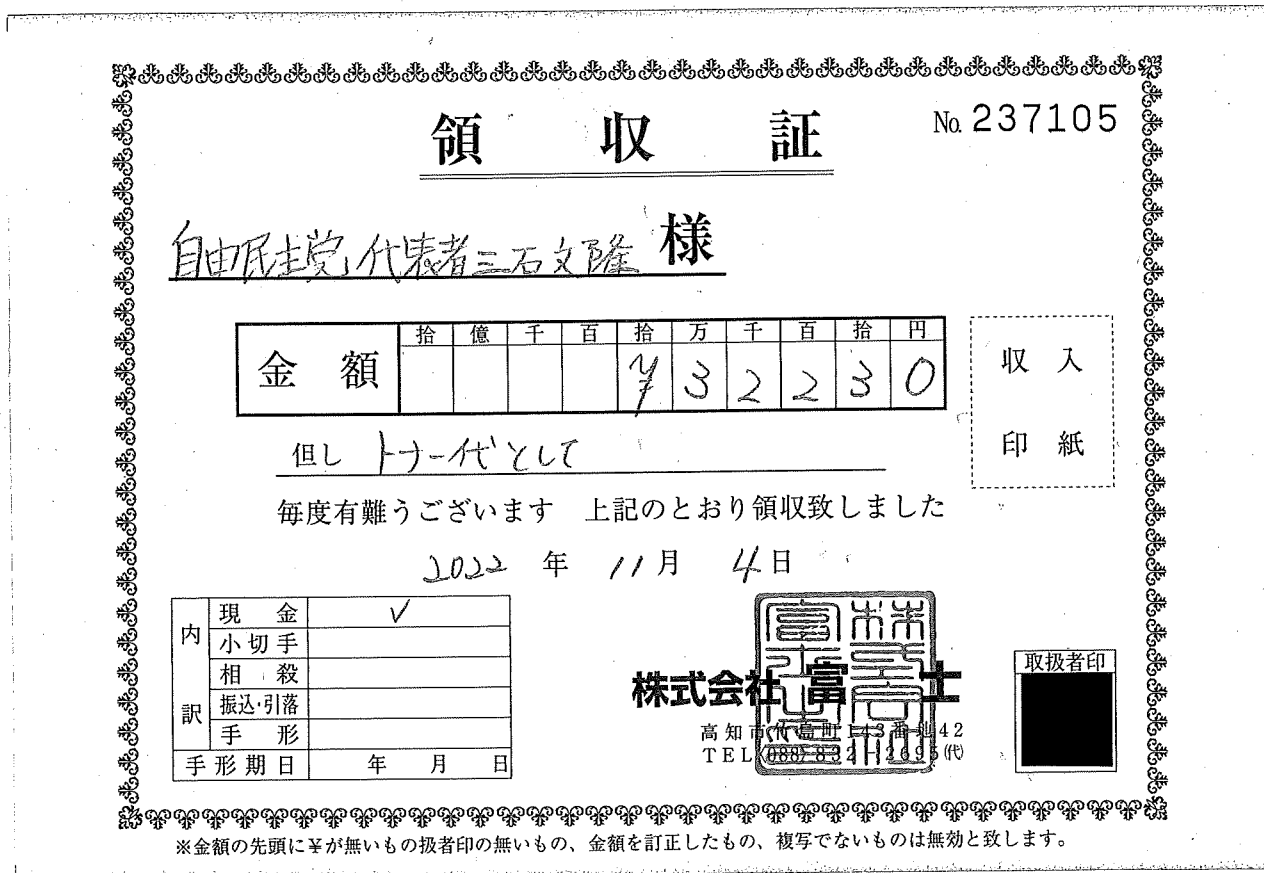 領収証
No. 237105
自由民主党 代表者三石文隆 様
金額
拾 億 千 百 拾 万 千 百 拾 円
¥ 3 2 2 3 0
収入
印紙
但し トナー代として
毎度有難うございます 上記のとおり領収致しました
2022 年 11 月 4 日
内訳
現金 ✓
小切手
相殺
振込・引落
手形
手形期日 年 月 日
株式会社 富士
高知市竹島町143番地42
TEL(088)832-2695(代)
取扱者印
※金額の先頭に¥が無いもの扱者印の無いもの、金額を訂正したもの、複写でないものは無効と致します。